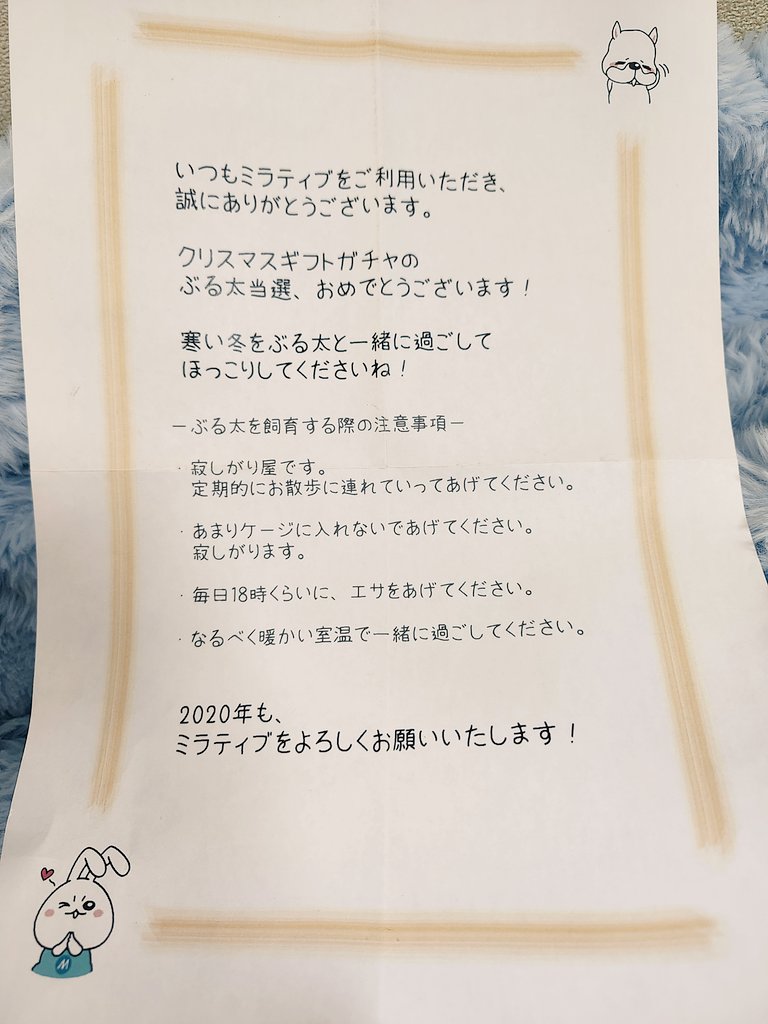 いつもミラティブをご利用いただき、
誠にありがとうございます。
クリスマスギフトガチャの
ぶる太当選、おめでとうございます！
寒い冬をぶる太と一緒に過ごして
ほっこりしてくださいね！
－ぶる太を飼育する際の注意事項－
・寂しがり屋です。
定期的にお散歩に連れていってあげてください。
・あまりケージに入れないであげてください。
寂しがります。
・毎日18時くらいに、エサをあげてください。
・なるべく暖かい室温で一緒に過ごしてください。
2020年も、
ミラティブをよろしくお願いいたします！
M